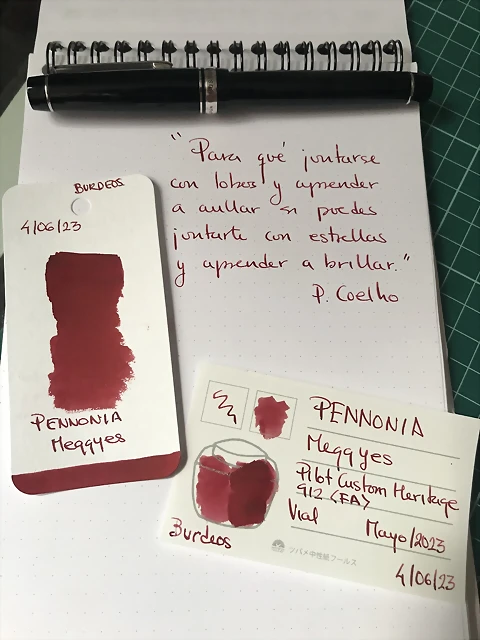 "Para qué juntarse
con lobos y aprender
a aullar si puedes
juntarte con estrellas
y aprender a brillar."
P. Coelho
BURDEOS
4/06/23
PENNONIA
Meggyes
PENNONIA
Meggyes
Pilot Custom Heritage
912 <FA>
Vial Mayo/2023
Burdeos
ツバメ中性紙フールス
4/06/23